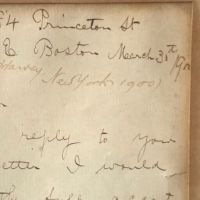 4 Princeton St
E Boston March 31st 190
Harvey
New York 1900)
n
reply to you
etter I would